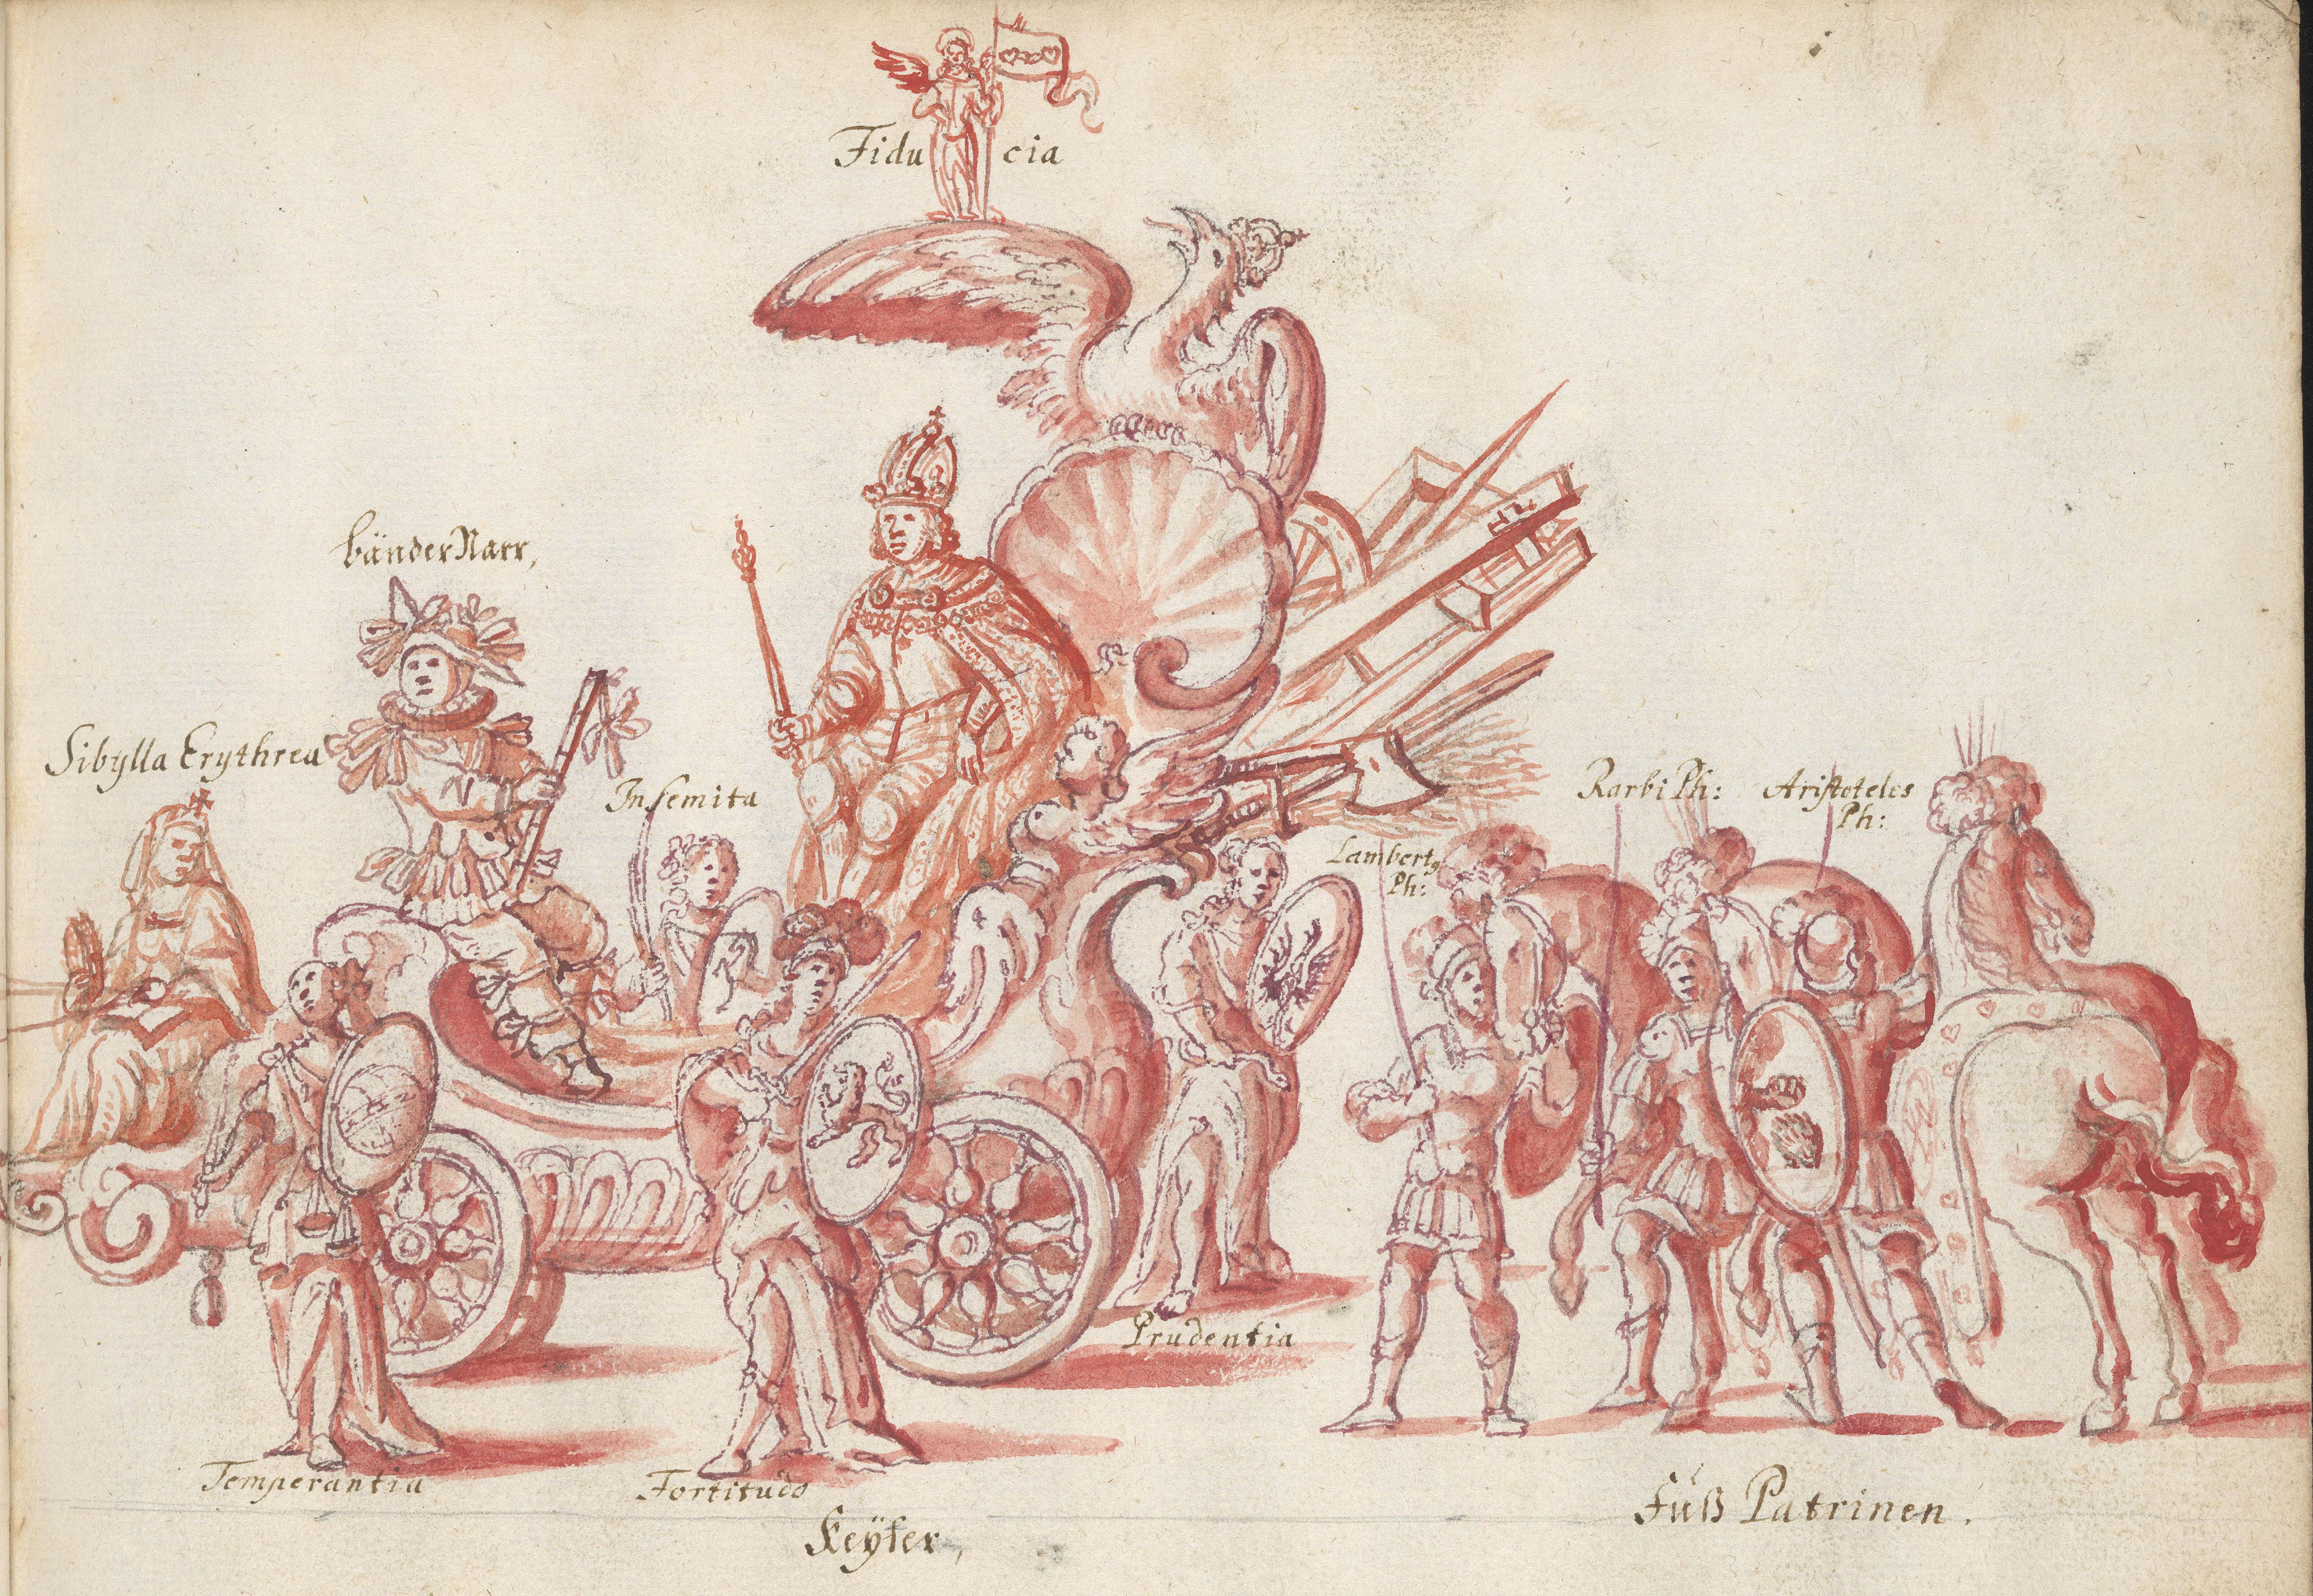 Fiducia
bänder Narr,
Sibylla Erythrea
Insemita
Rarbi Ph:
Aristoteles
Ph:
Lambertg
Ph:
Prudentia
Temperantia
Fortitudo
Keÿser,
Fuß Patrinen.